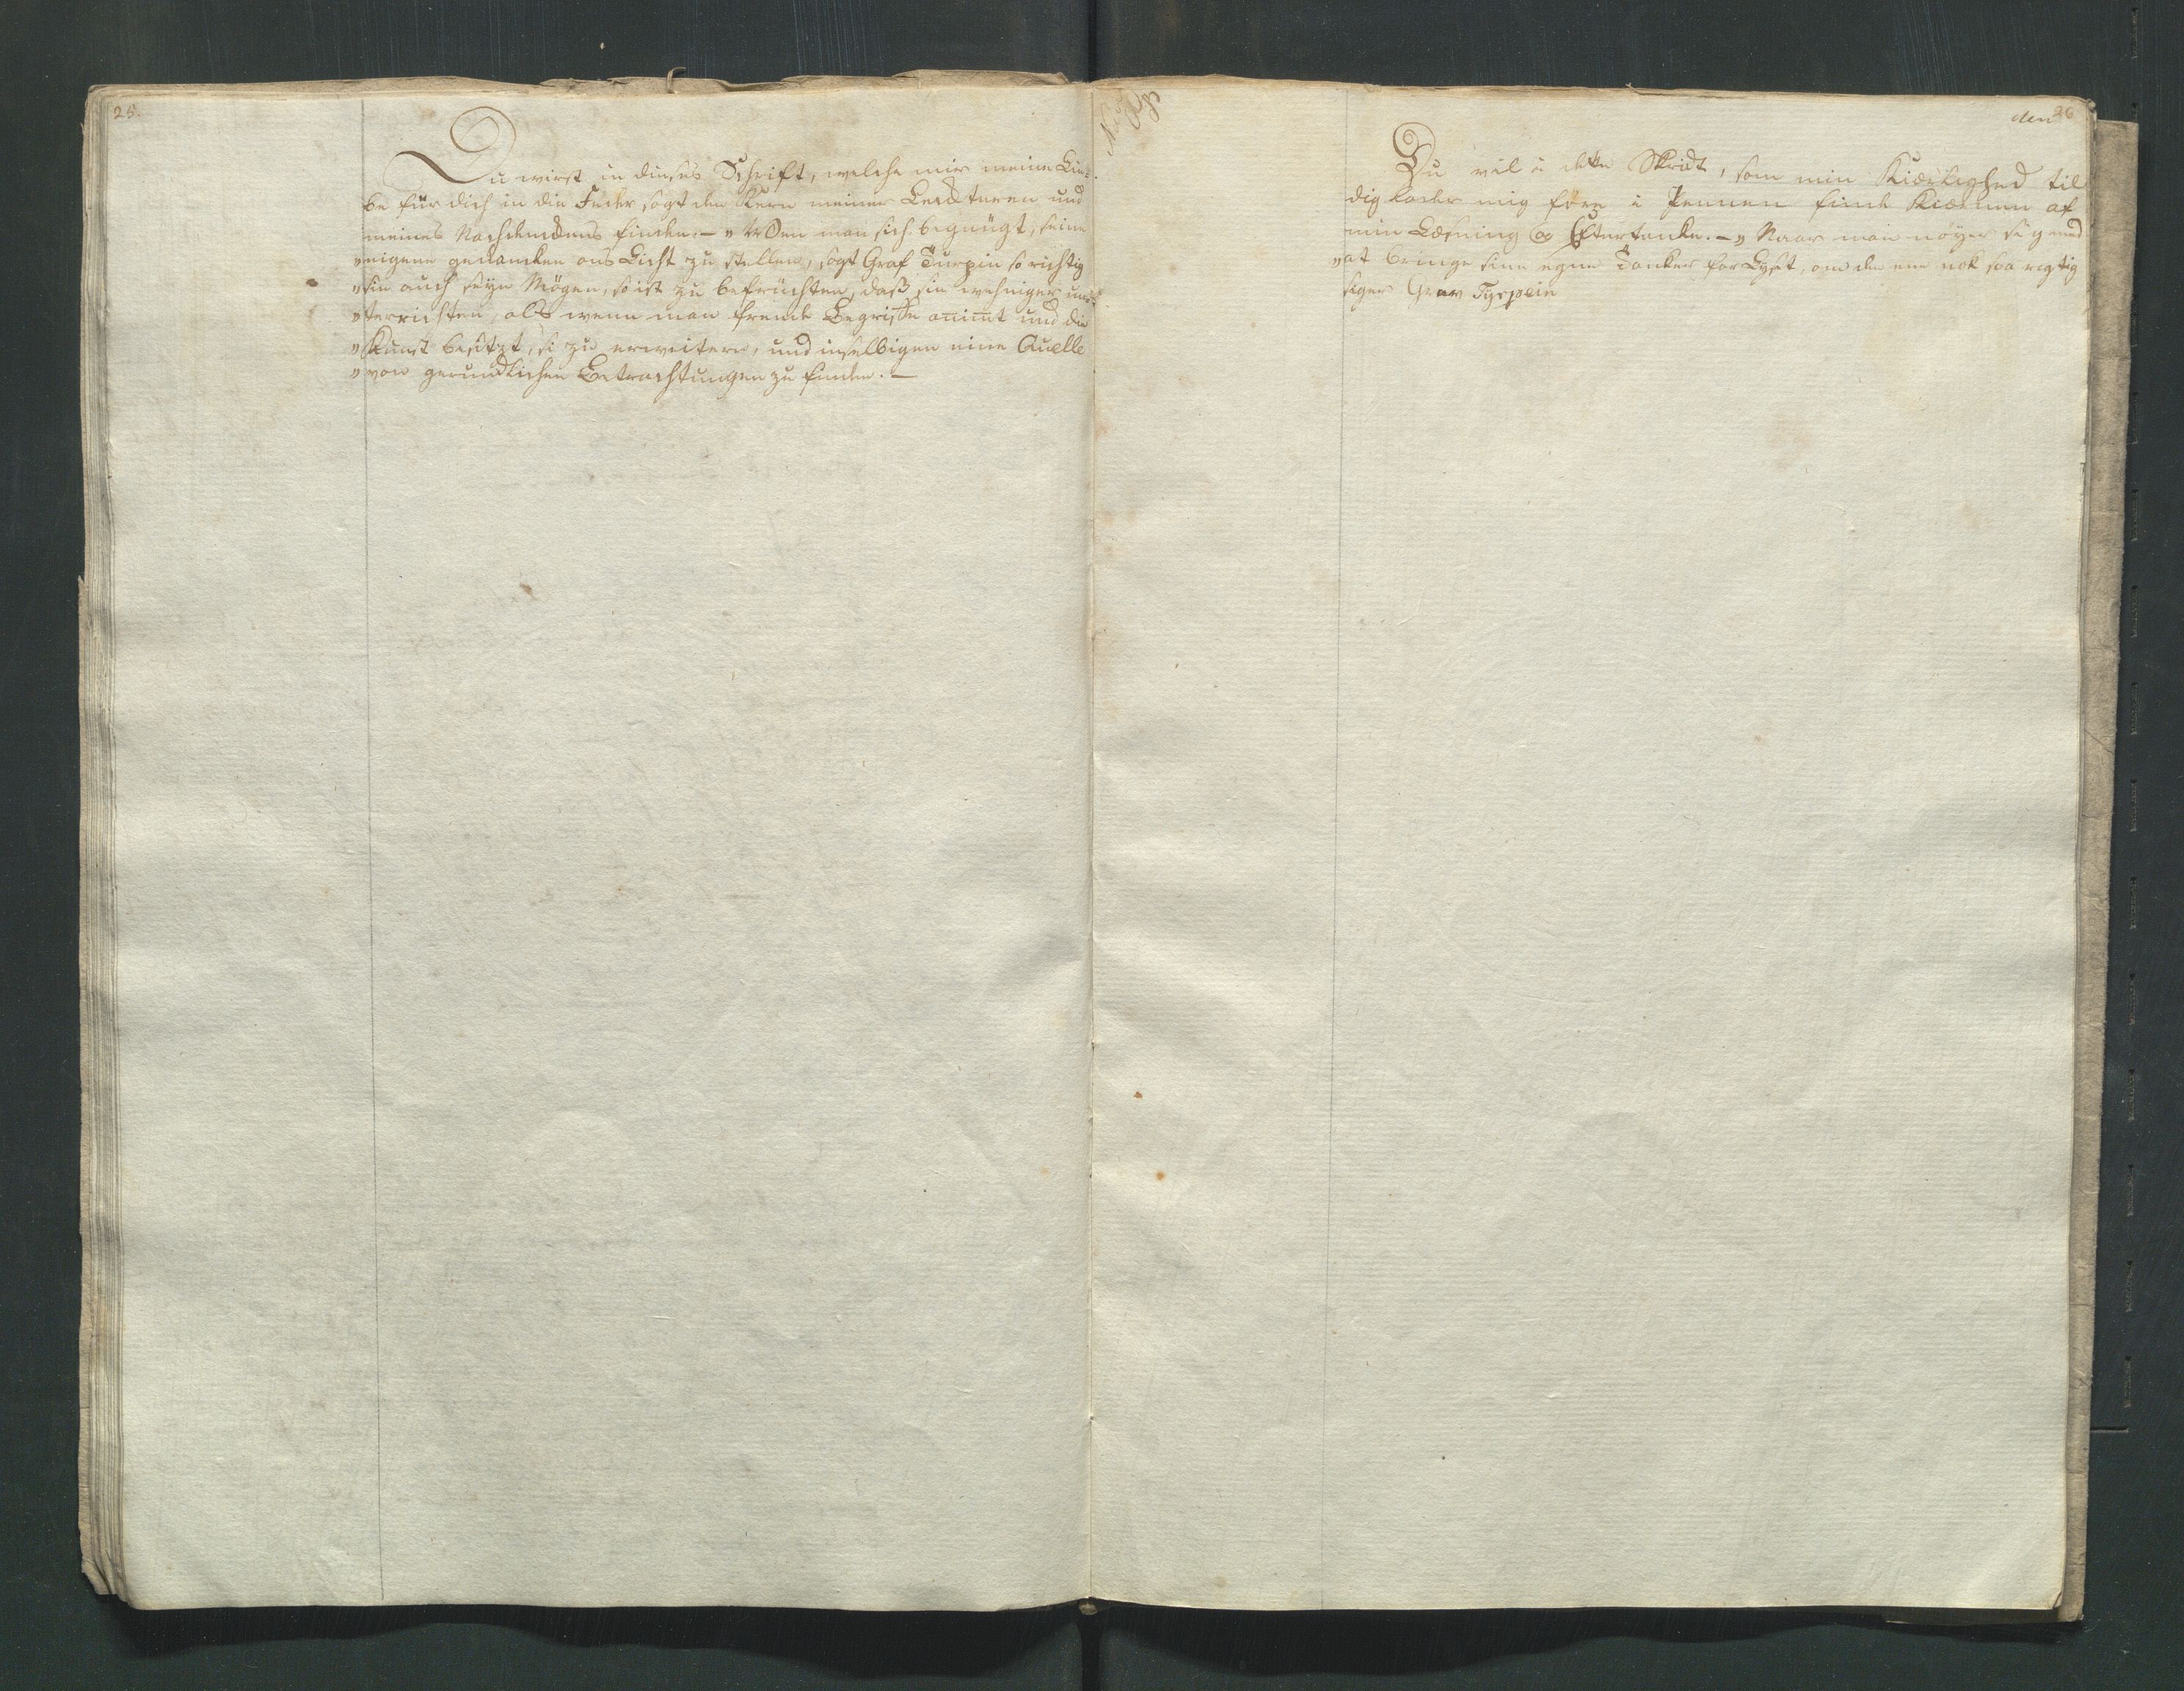 25.
Du wirst in dieser Schrift, welche mir meine Lie-
be für dich in die Feder sagt den Kern meiner Lecktüren und
meines Nachdenckens finden. – „ Wen man sich begnügt, seine
„ eigene gedancken ans Licht zu stellen, sagt Graf Turpin so richtig
„ sie auch seyn Mögen, so ist zu befrüchten, daß sie wehniger un-
„ terrichten, als wenn man fremde Begriffe animt und die
„ Kunst besitzt, si zu erweitern, und inselbigen eine Quelle
„ von gerundlichen Betrachtungen zu finden. –
den 26
Du vil i dette Skridt, som min Kiærlighed til
dig lader mig före i Pennen finde Kiærnen af
min Læsning og Eftertanke. – „ Naar man nöyer sig med
„ at bringe sine egne Tanker for Lyset, om de ene nok saa rigtig
siger Grav Tyrpein